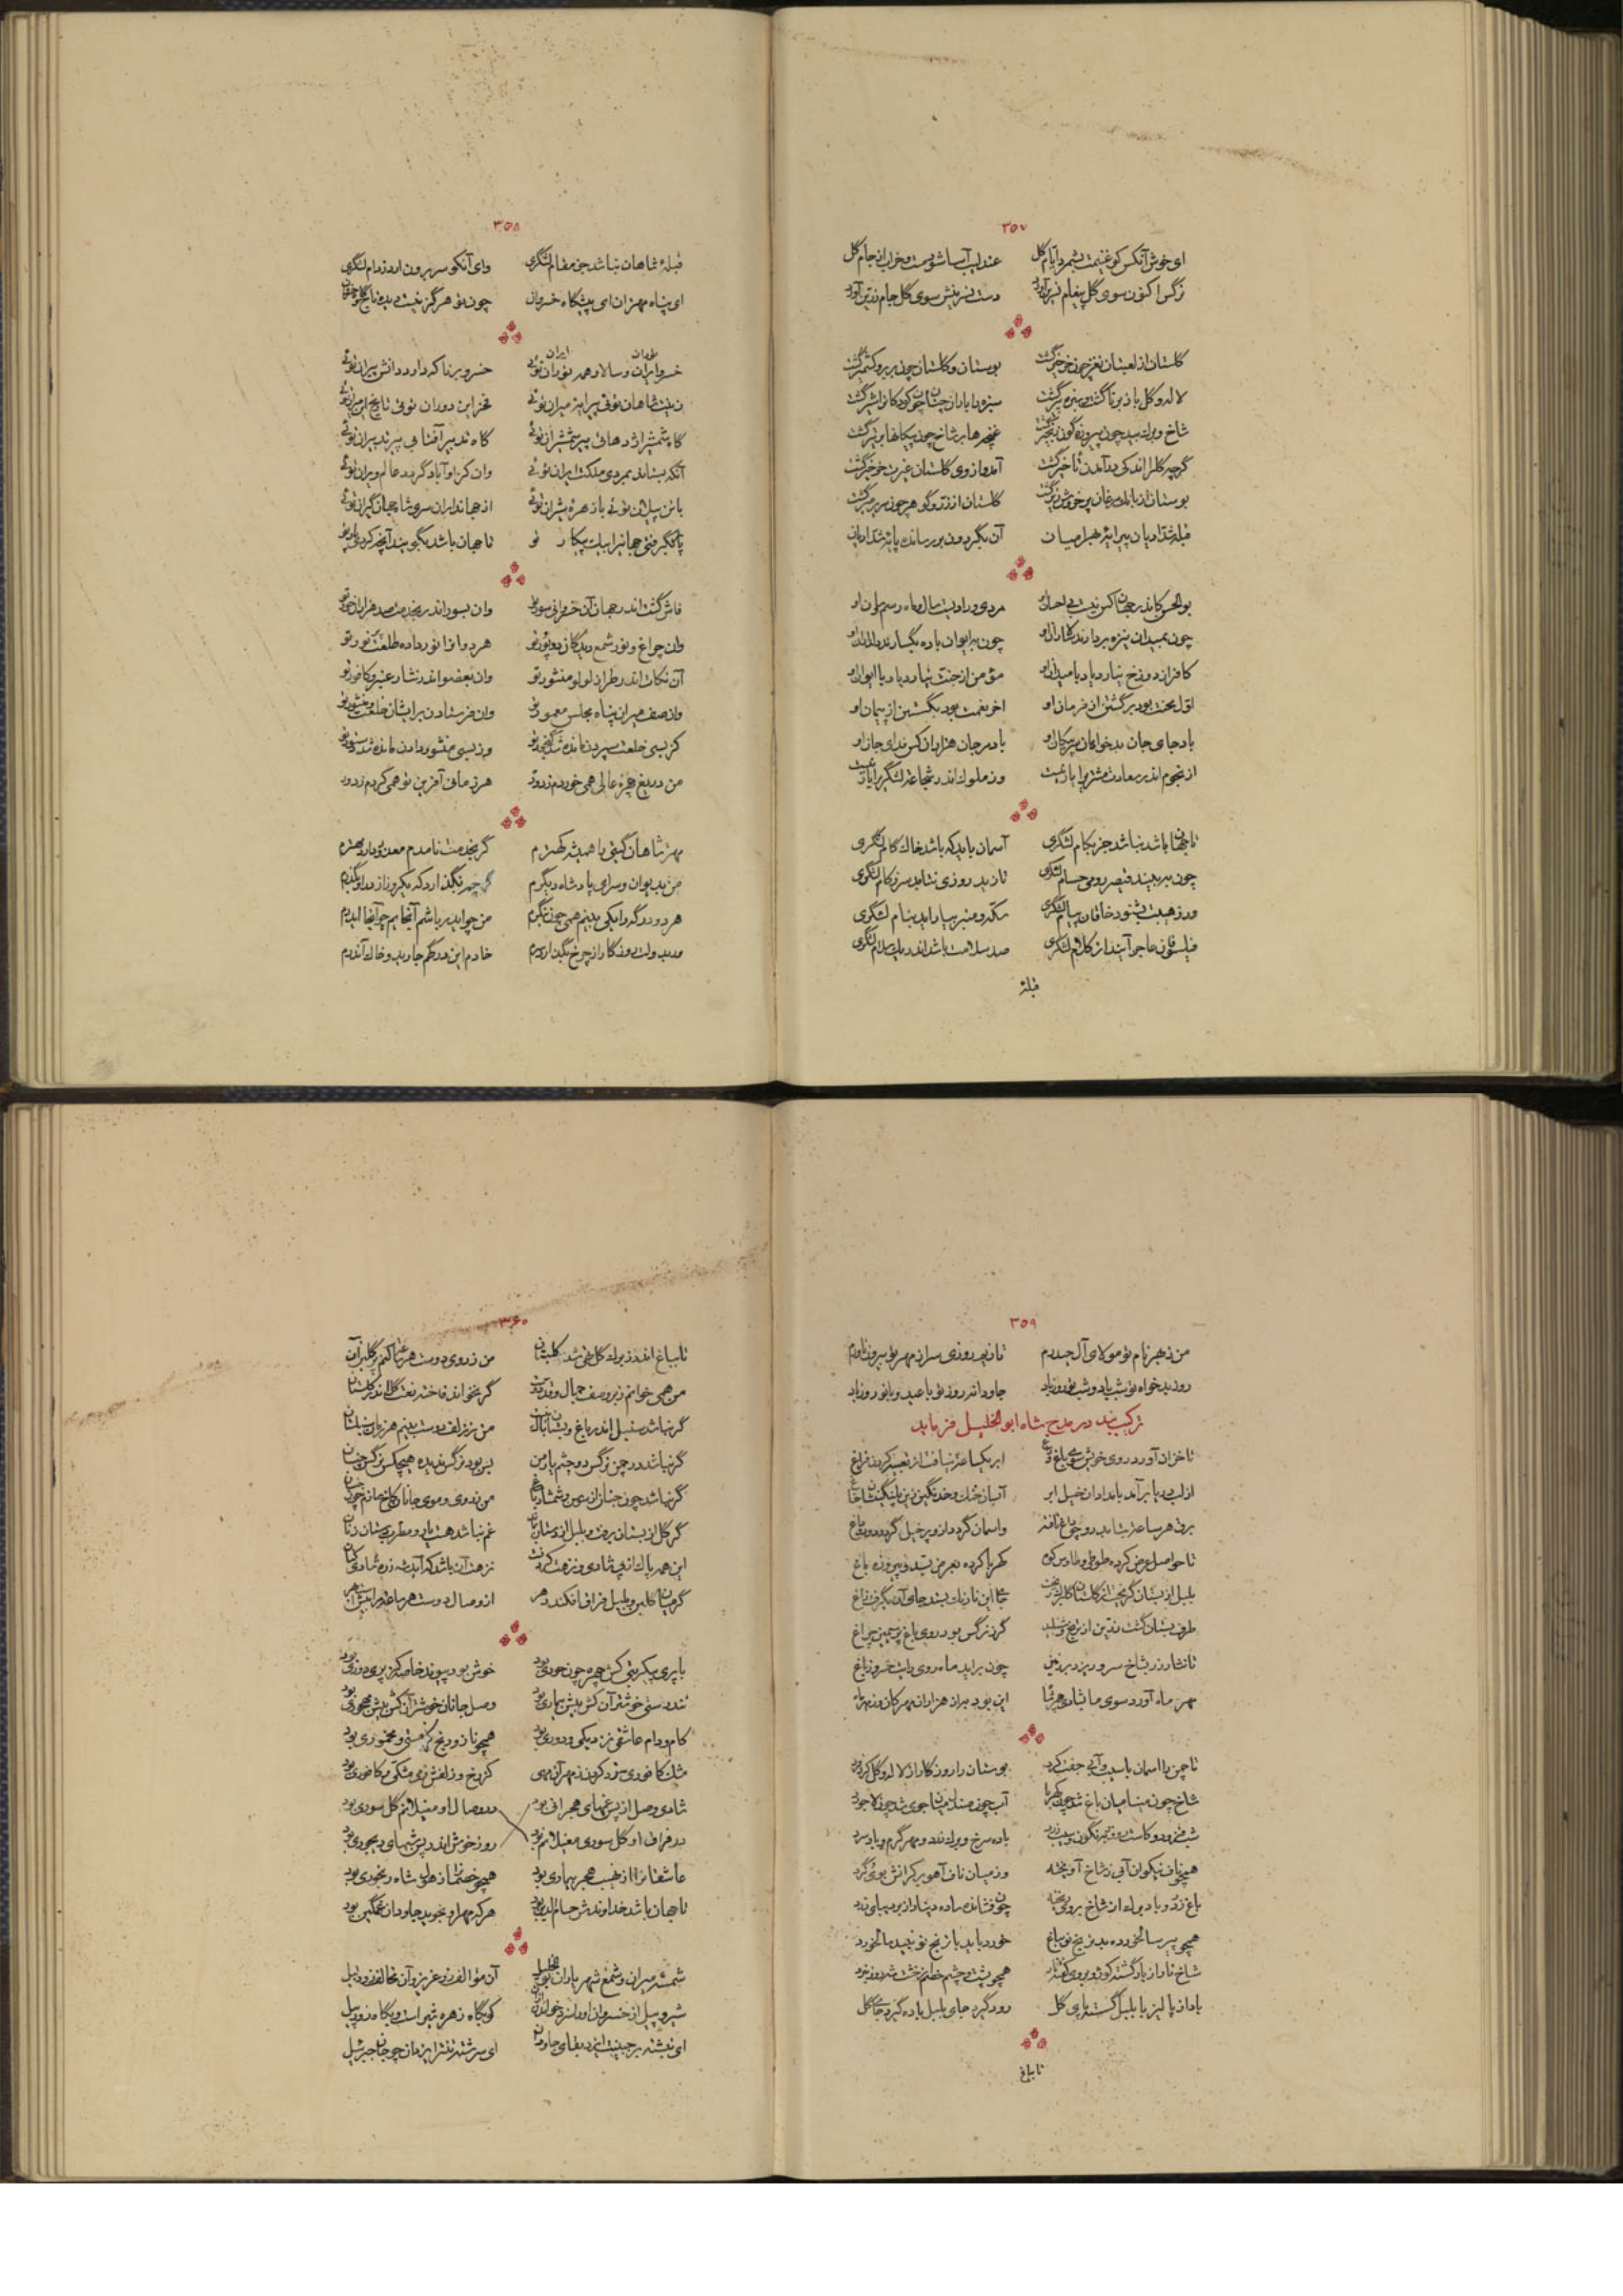 ۳۵۷
ای خوش آنکس کو غنیمت بشمرد ایام گل عندلیب آسا شود مست و خراب از جام گل
نرگس اکنون سوی گل پیغام نسرین آورد دست نسرینش سوی گل جام زرین آورد
گلستان از لعبتان نغز چون خرخیز گشت بوستان و گلستان چون بربر و کشمیر گشت
لاله و گل باز برنا گشت و سبزه پیر گشت سبزه را باران چنان چون کودکان را شیر گشت
شاخ و برگ بید چون پیروزه گون شمشیر گشت غنچه ها بر شاخ چون پیکانها بر تیر گشت
گرچه گل را اندکی در آمدن تأخیر گشت آمد و از وی گلستان غیرت خرخیز گشت
بوستان از بانگ مرغان پر خروش زیر گشت گلستان از در و گوهر چون سریر میر گشت
قبله شدادیان پیرایه بهرامیان آن بگردون بر رسانده پایه شدادیان
بوالحسن کاندر جهان کس نیست بی احسان او مردی و رادیست سال و ماه رسم و سان او
چون بمیدان نیزه بردارد کجا زال او چون بر ایوان باده بگسارد
کافر از دوزخ نیارد یاد با میدان او مؤمن از جنت نیارد یاد با ایوان او
اول بخت بود برگشتن از فرمان او آخر نعمت بود بگسستن از پیمان او
باد جای جان بدخواهان سر پیکان او باد مر جان هزاران کس فدای جان او
از نجوم اندر سعادت مشتری را یار نیست وز ملوک اندر شجاعت لشگری را یار نیست
تا جهان باشد نباشد جز بکام لشگری آسمان باید که باشد خاک گام لشگری
چون ببیند قیصر رومی حسام لشگری تا ز بد روزی نتابد سر ز کام لشگری
ور ز هیبت بشنود خاقان پیام لشگری سکه و منبر بیاراید بنام لشگری
فیلسوفان عاجز آیند از کلام لشگری صد سلامت باشد اندر یک سلام لشگری
قبله
۳۵۸
قبله شاهان نباشد جز مقام لشگری وای آنکو سر برون آرد ز دام لشگری
ای پناه مهتران ای پیشگاه خسروان چون تو هرگز نیست دیده تاج و گاه خسروان
خسرو ایران و سالار همه توران توئی خسرو برنا که دارد دانش پیران توئی
زینت شاهان توئی پیرایه میران توئی فخر این دوران توئی تاج امیران توئی
گاه شمشیر اژدهائی پیر شمشیران توئی گاه تدبیر آفتابی پیر تدبیران توئی
آنکه بستاند بمردی مملکت ایران توئی وان کز او آباد گردد عالم ویران توئی
با تن پیلان توئی با زهره شیران توئی از جهانداران سری شاه جهانگیران توئی
پاک بگرفتی جهان را یک پیکار تو تا جهان باشد بگویند آنچه کردی
فاش گشت اندر جهان آن خسروانی سور تو وان بسور اندر بخدمت صد هزاران حور تو
وان چراغ و نور شمع دیدگان دو پور تو هر دو را نور داده طلعت پر نور تو
آن نکات اندر طراز لولو منثور تو وان بعضو اندر نثار عنبر و کافور تو
وان صف میران پناه مجلس معمور تو وان فرستادن برایشان خلعت و منشور تو
کز بسی خلعت سپردن مانده شد گنجور تو وز بسی منشور دادن مانده شد دستور تو
من دریغ چهره عالی همی خوردم ز دور هر زمانی آفرین تو همی کردم ز دور
مهتر شاهان گیتی را همیشه کهترم گر بخدمت نامدم معذور دارد مهترم
من بدیوان و سرای پادشاه دیگرم گر چه نگذارد که یکروز از در او بگذرم
هر دو درگه را یکی بینم همی چون بنگرم من چو ایدر باشم آنجایم چو آنجا ایدرم
خادم این درگهم جاوید و خاک آن درم
۳۵۹
من ز بهر نام تو مولای آل حیدرم تا ز بد روزی سر از مهر تو بیرون ناورم
روز بدخواه تو شب باد و شب تو روز باد جاودانه روز تو با عید و با نوروز باد
ترکیب بند در مدح شاه ابوالخلیل فرماید
تا خزان آورد روی خویش سوی باغ و راغ ابر یکساعت نیافت از تعبیه کردن فراغ
از لب دریا برآید بامدادان خیل ابر
برق هر ساعت بتابد زو چو داغ تافته و آسمان گردد از او پر خیل گردد دود داغ
تا حواصل عرض کرده طوطی و طاوس کوه کهربا کرده بعرض بسد و پیروزه باغ
بلبل از بستان گریخت از گلستان گل برگ ریخت جای این نارنگ بستد جای آن بگرفت زاغ
طرف بستان گشت زرین از ترنج و شنبلید گرز نرگس بود روی باغ پر سیمین چراغ
تا نثار زر بشاخ سرو ریزد بر زمین چون برآید ماه روی رایت خسرو ز باغ
مهر ماه آورد سوی ما بشادی مهر شاه این بود بهتر از هزاران مهرگان و مهر ماه
تا چمن را آسمان با سیب و آبی جفت کرد بوستان را روزگار از لاله و گل کرد فرد
شاخ چون مینا میان باغ شد چون کهربا آب چون صندل میان جوی شد چون لاجورد
شب فزود و کاست روز و تیر نگون و سیب زرد باده سرخ و برگ زرد و مهر گرم و باد سرد
همچو ناف نیکوان آبی ز شاخ آویخته وز میان ناف آهو بر کرانش بوی گرد
باغ زرد و باد برگ از شاخ بر وی ریخته چون فشانده ساده دینار از بر دیبای زرد
همچو پیر سالخورده بد ترنج نو بباغ خورد باید با ترنج نو نبید سالخورد
شاخ نار از باد گشته کوژ و بر وی کفته نار همچو پشت و چشم خصم خسته شه روز نبرد
باد از پالیز با بلبل گسسته پای گل رود گیرد جای بلبل باده گیرد جای گل
تا بباغ
۳۶۰
تا بباغ اندر ز برگ گل تهی شد گلبنان من ز روی دوست هر ساعت کنم پر گل بر آن
من همی خوانم ز بر وصف جمال و قد دوست گر نخواند فاخته نعت گل اندر گلستان
گر نباشد سنبل اندر باغ و بستان باک نیست من ز زلف دوست بینم هر زمان سنبلستان
گر نباشد در چمن نرگس دو چشم یار من بس بود نرگس ندیده هیچکس نرگس چنان
گر نباشد چون چنار از سرو شمشاد باغ من ز روی و موی جانان کاخ مانم چون جنان
گر گل از بستان برفت و بلبل از بستان برفت غم نباشد هست یار و مطرب دستان زنان
این همه پاک از پی شادی و نزهت کرده‌اند نزهت آن باشد که آید شه زره شادی کنان
گر میان گلبن و بلبل فراق افکند دهر از وصال دوست هر ساعت مرا بیش است بهر
با پری پیکر بتی کش چهره چون حوری بود خوش بود پیوند خاصه کز پی دوری بود
تندرستی خوشتر آن کش پیش بیماری بود وصل جانان خوشتر آن کش پیش مهجوری بود
کام و دام عاشقی نزدیکی و دوری بود همچو ناز و رنج کز مستی و مخموری بود
مشک کافوری سزد گردون ز مهر آن مهی کز رخ و زلفش نهی مشکی و کافوری بود
شادی وصل از پس غمهای هجران خوش بود در وصال او مغیلانم گل سوری بود
در فراق او گل سوری مغیلانم بود روز خوش اندر پس شبهای دیجوری بود
عاشقان را از نهیب هجر بیماری بود همچو خصمان را ز هول شاه رنجوری بود
تا جهان باشد خداوندش حسام الدین بود هر که مهر او نجوید جاودان غمگین بود
شمسه میران و شمع شهریاران بوالخلیل آن مؤالف زو عزیز و آن مخالف زو ذلیل
شیر و پیل از خسروان او را سزد خواندن کو بگاه زهره شیر است و بگاه زور پیل
ای نبشته بر جبینت ایزد بقای جاودان ای سرشته تنت را یزدان چو جان جبرئیل